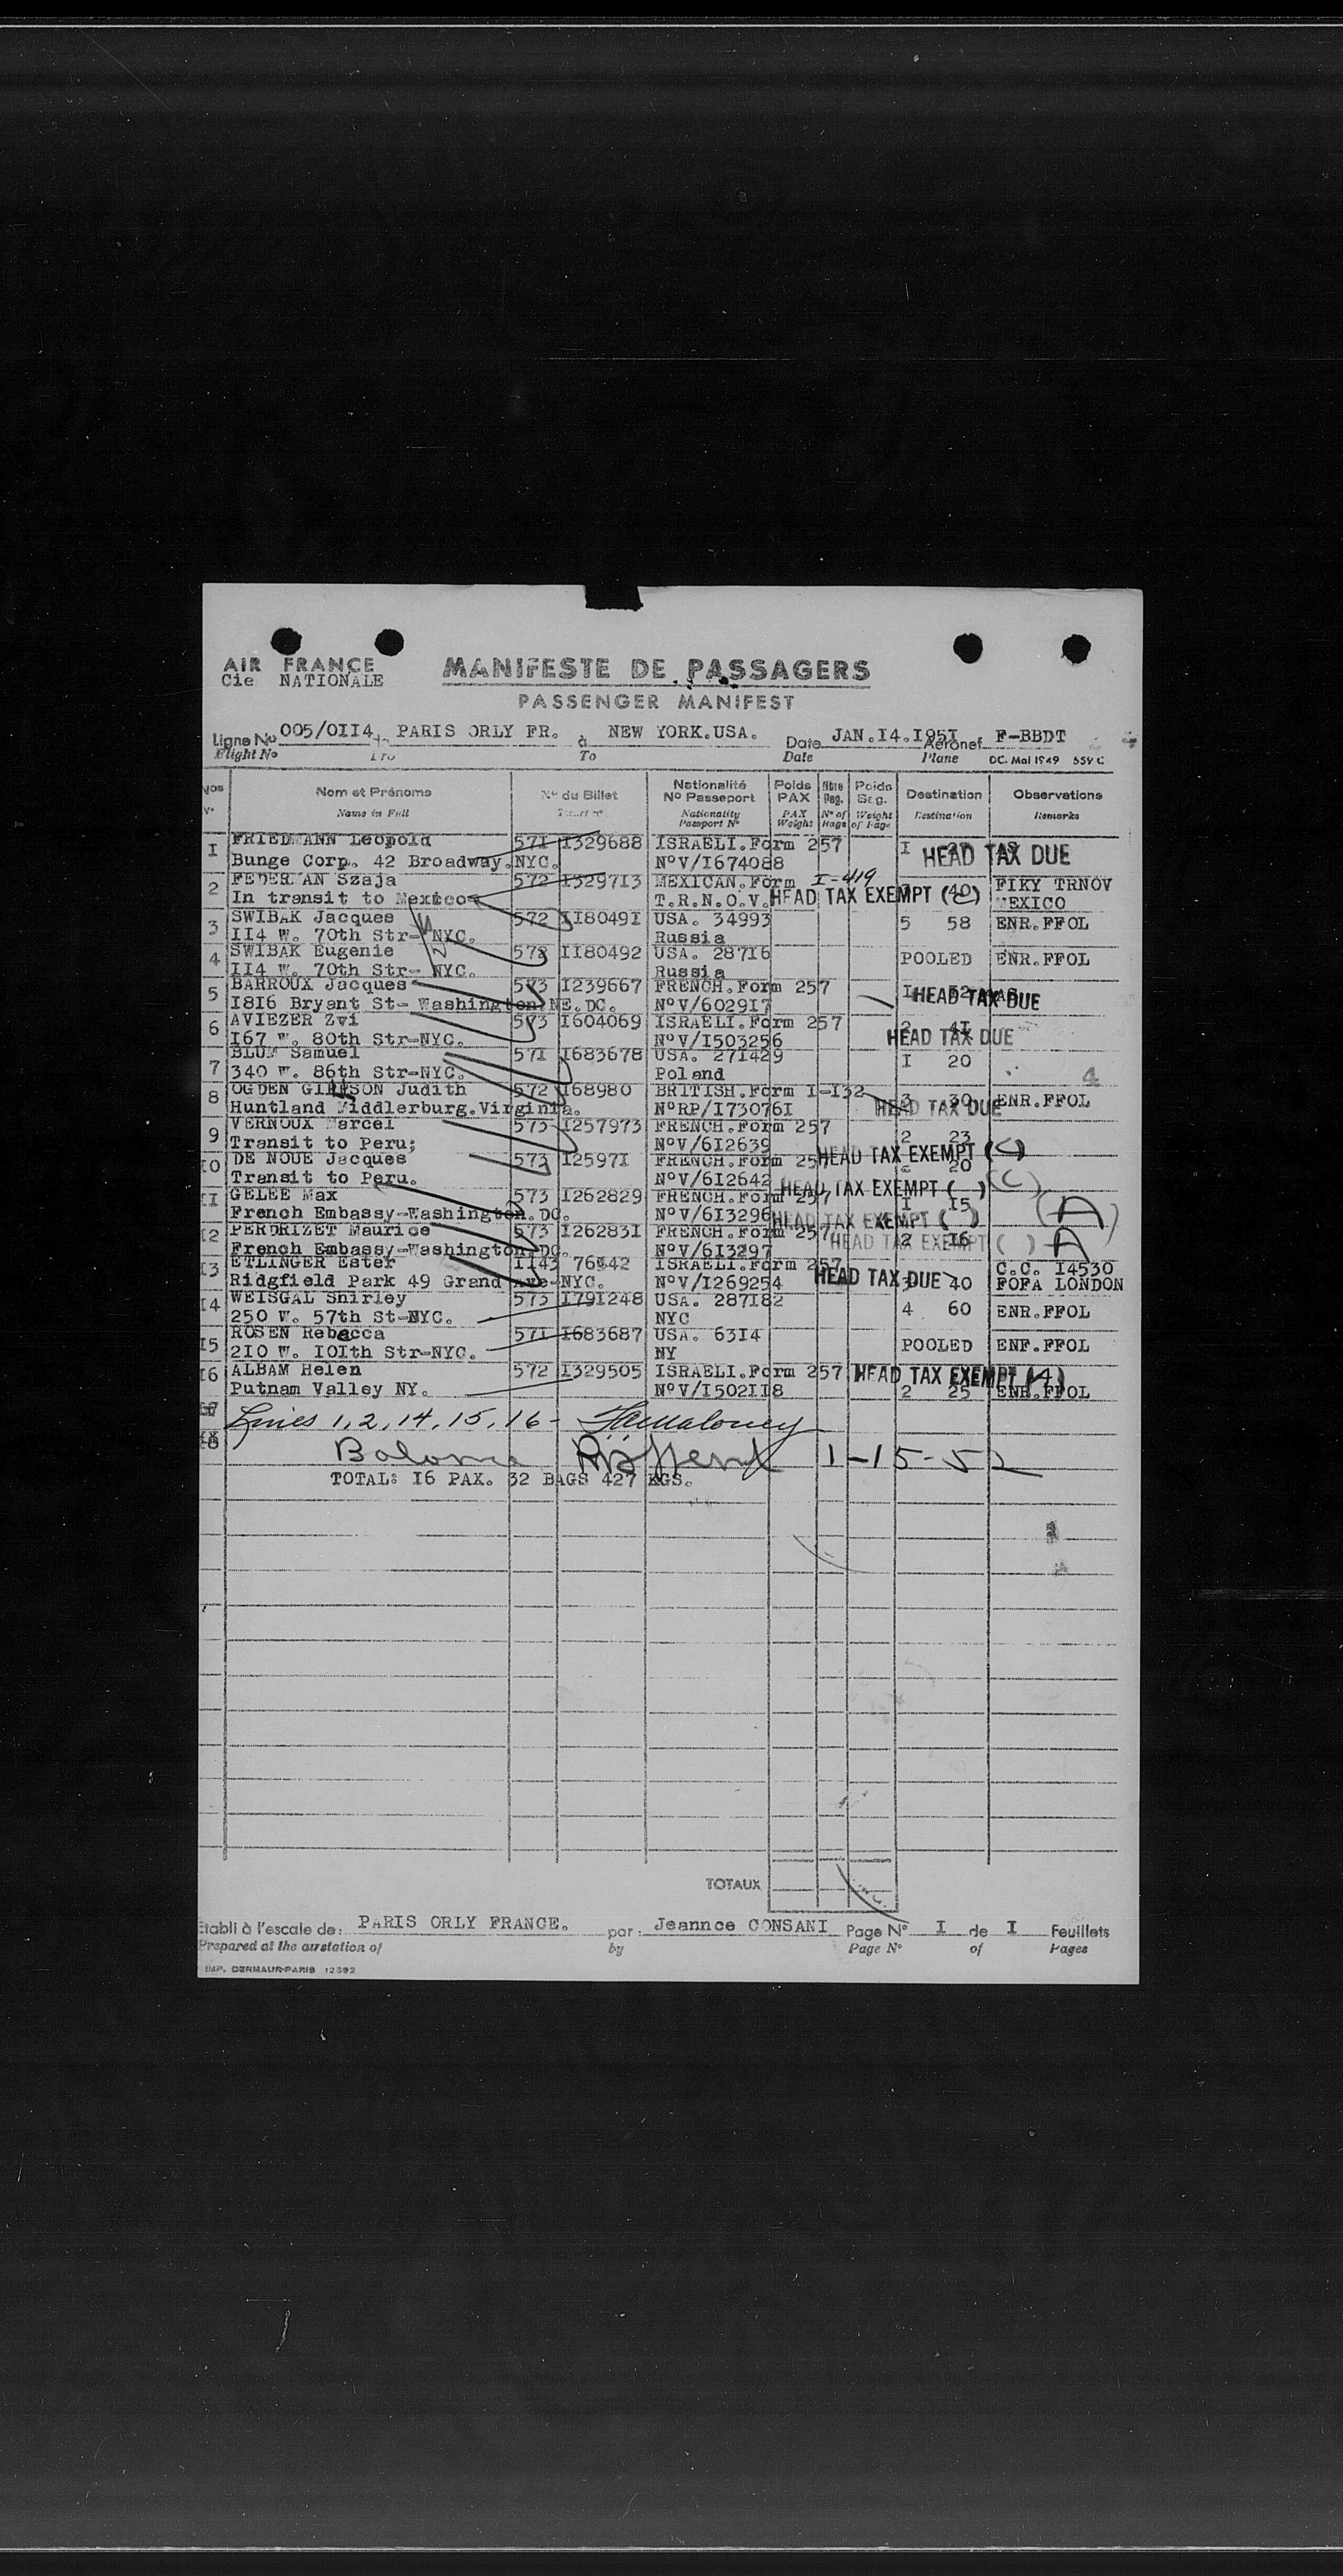 AIR FRANCE
Cie NATIONALE
MANIFESTE DE PASSAGERS
PASSENGER MANIFEST
Ligne No 005/0II4 PARIS ORLY FR. à NEW YORK.USA. Date JAN.I4.I95I Aéronef F-BBDT
Flight No To Date Plane DC. Mai 1949 55V C
Nos Nom et Prénoms No du Billet Nationalité No Passeport Poids PAX Nbre Bag. Poids Bag. Destination Observations
Name in Full Nationality Passport No PAX Weight No of Bags Weight of Bags Destination Remarks
I FRIEDMANN Leopold 57I I329688 ISRAELI.Form 257 I HEAD TAX DUE
Bunge Corp. 42 Broadway.NYC. NoV/I674088
2 FEDERMAN Szaja 572 I3297I3 MEXICAN.Form I-419 40 FIKY TRNOV
In transit to Mexico T.R.N.O.V. HEAD TAX EXEMPT (C) MEXICO
3 SWIBAK Jacques 572 II8049I USA. 34993 5 58 ENR.FFOL
II4 W. 70th Str- NYC. Russia
4 SWIBAK Eugenie 572 II80492 USA. 287I6 POOLED ENR.FFOL
II4 W. 70th Str- NYC. Russia
5 BARROUX Jacques 573 I239667 FRENCH.Form 257 I HEAD TAX DUE
I8I6 Bryant St- Washington.NE.DC. NoV/6029I7
6 AVIEZER Zvi 573 I604069 ISRAELI.Form 257 2 4I
I67 W. 80th Str-NYC. NoV/I503256 HEAD TAX DUE
7 BLUM Samuel 57I I683678 USA. 27I429 I 20
340 W. 86th Str-NYC. Poland 4
8 OGDEN Judith 572 I68980 BRITISH.Form I-I32 3 30 ENR.FFOL
Huntland Middlerburg.Virginia. NoRP/I73076I HEAD TAX DUE
9 VERNOUX Marcel 573 I257973 FRENCH.Form 257 2 23
Transit to Peru; NoV/6I2639 HEAD TAX EXEMPT (C)
I0 DE NOUE Jacques 573 I2597I FRENCH.Form 257 20
Transit to Peru. NoV/6I2642 HEAD TAX EXEMPT ( ) (C)
II GELEE Max 573 I262829 FRENCH.Form 257 I I5
French Embassy-Washington.DC. NoV/6I3296 HEAD TAX EXEMPT ( ) (A)
I2 PERDRIZET Maurice 573 I26283I FRENCH.Form 257 2 I6
French Embassy-Washington.DC. NoV/6I3297 HEAD TAX EXEMPT ( ) A
I3 ETLINGER Ester II43 76842 ISRAELI.Form 257 C.C. I4530
Ridgfield Park 49 Grand Ave-NYC. NoV/I269254 HEAD TAX DUE 3 40 FOFA LONDON
I4 WEISGAL Shirley 573 I79I248 USA. 287I82 4 60 ENR.FFOL
250 W. 57th St-NYC. NYC
I5 ROSEN Rebecca 57I I683687 USA. 63I4 POOLED ENF.FFOL
2I0 W. I0Ith Str-NYC. NY
I6 ALBAM Helen 572 I329505 ISRAELI.Form 257 HEAD TAX EXEMPT (4)
Putnam Valley NY. NoV/I502II8 2 25 ENR.FFOL
Lines 1, 2, 14, 15, 16 -
1-15-52
TOTAL: I6 PAX. 32 BAGS 427 KGS.
TOTAUX
Etabli à l'escale de: PARIS ORLY FRANCE. par: Jeannce CONSANI Page No I de I Feuillets
Prepared at the airstation of by Page No of Pages
IMP. DERMAUR-PARIS 12392